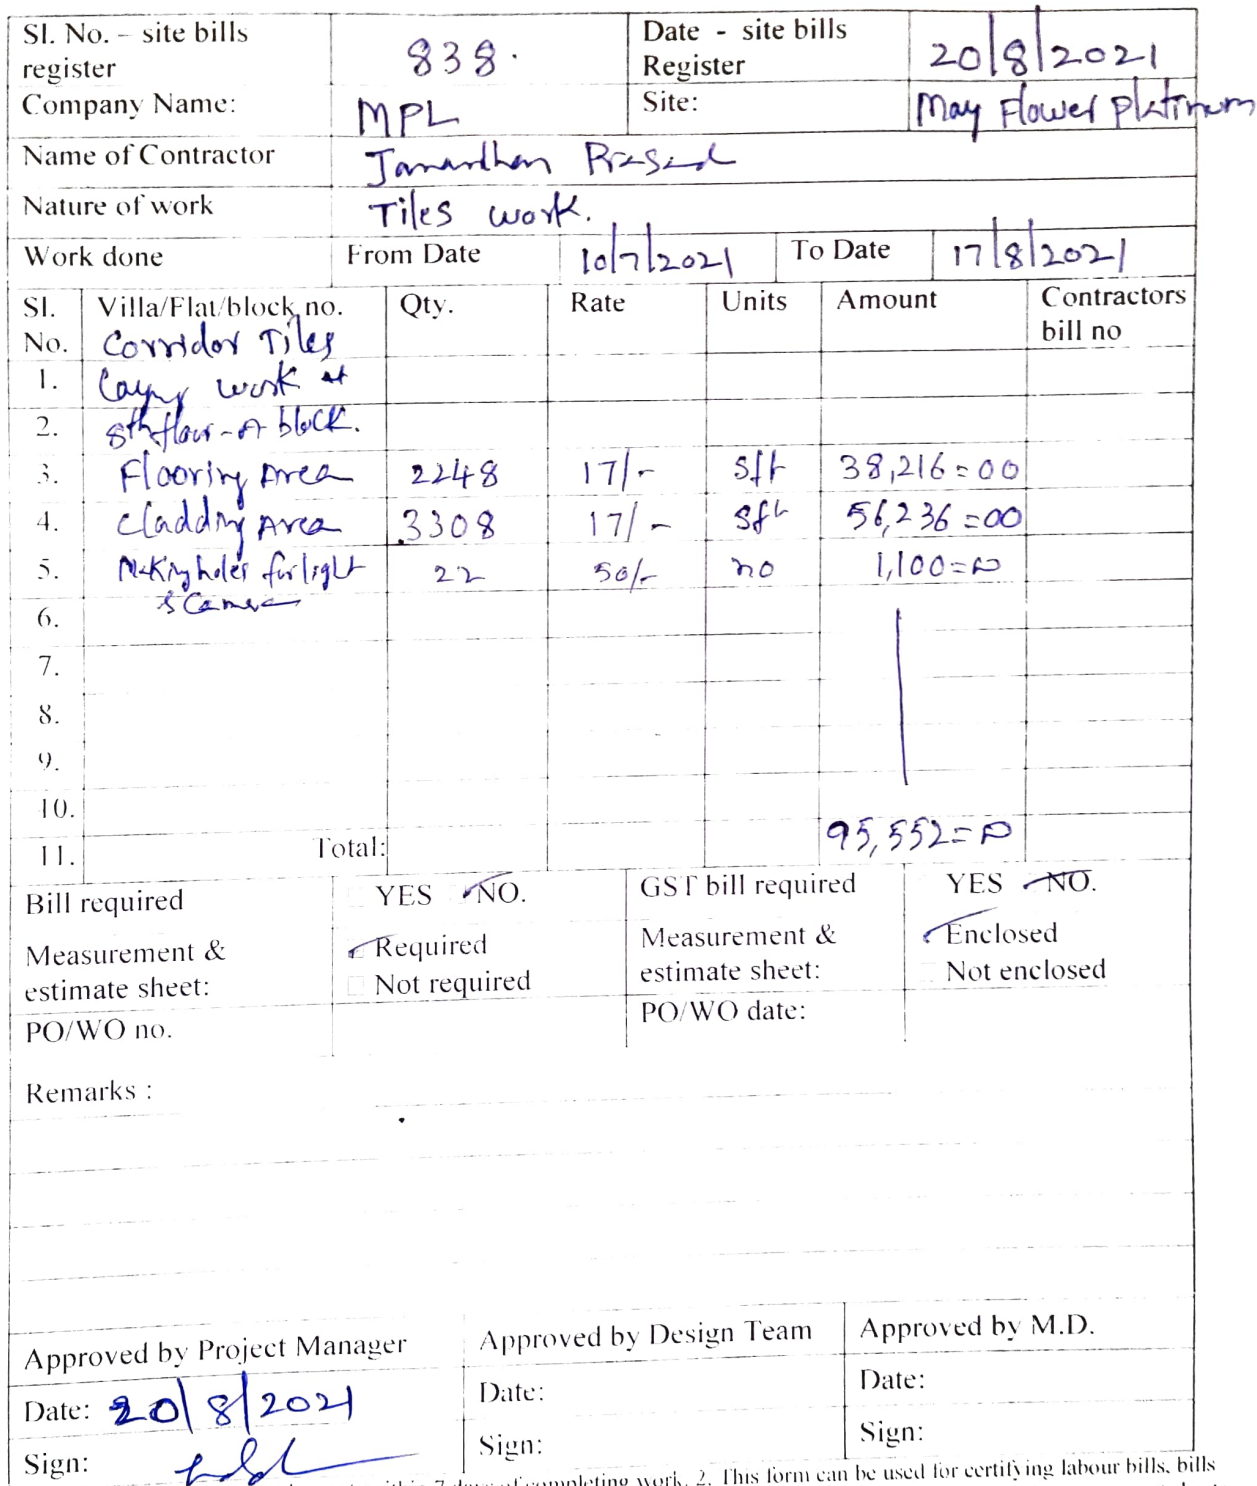 Sl. No. – site bills register 838. Date - site bills Register 20/8/2021
Company Name: MPL Site: May Flower Platinum
Name of Contractor Janardhan Prasad
Nature of work Tiles work.
Work done From Date 10/7/2021 To Date 17/8/2021
Sl. No. Villa/Flat/block no. Qty. Rate Units Amount Contractors bill no
Corridor Tiles
1. Laying work at
2. 8th floor - A block.
3. Flooring Area 2248 17/- sft 38,216=00
4. Cladding Area 3308 17/- sft 56,236=00
5. Making holes for light 22 50/- no 1,100=00
& Camera
6.
7.
8.
9.
10.
11. Total: 95,552=00
Bill required YES NO. GST bill required YES NO.
Measurement & estimate sheet: Required Measurement & estimate sheet: Enclosed
Not required Not enclosed
PO/WO no. PO/WO date:
Remarks :
Approved by Project Manager Approved by Design Team Approved by M.D.
Date: 20/8/2021 Date: Date:
Sign: Sign: Sign:
7 days of completing work. 2. This form can be used for certifying labour bills, bills